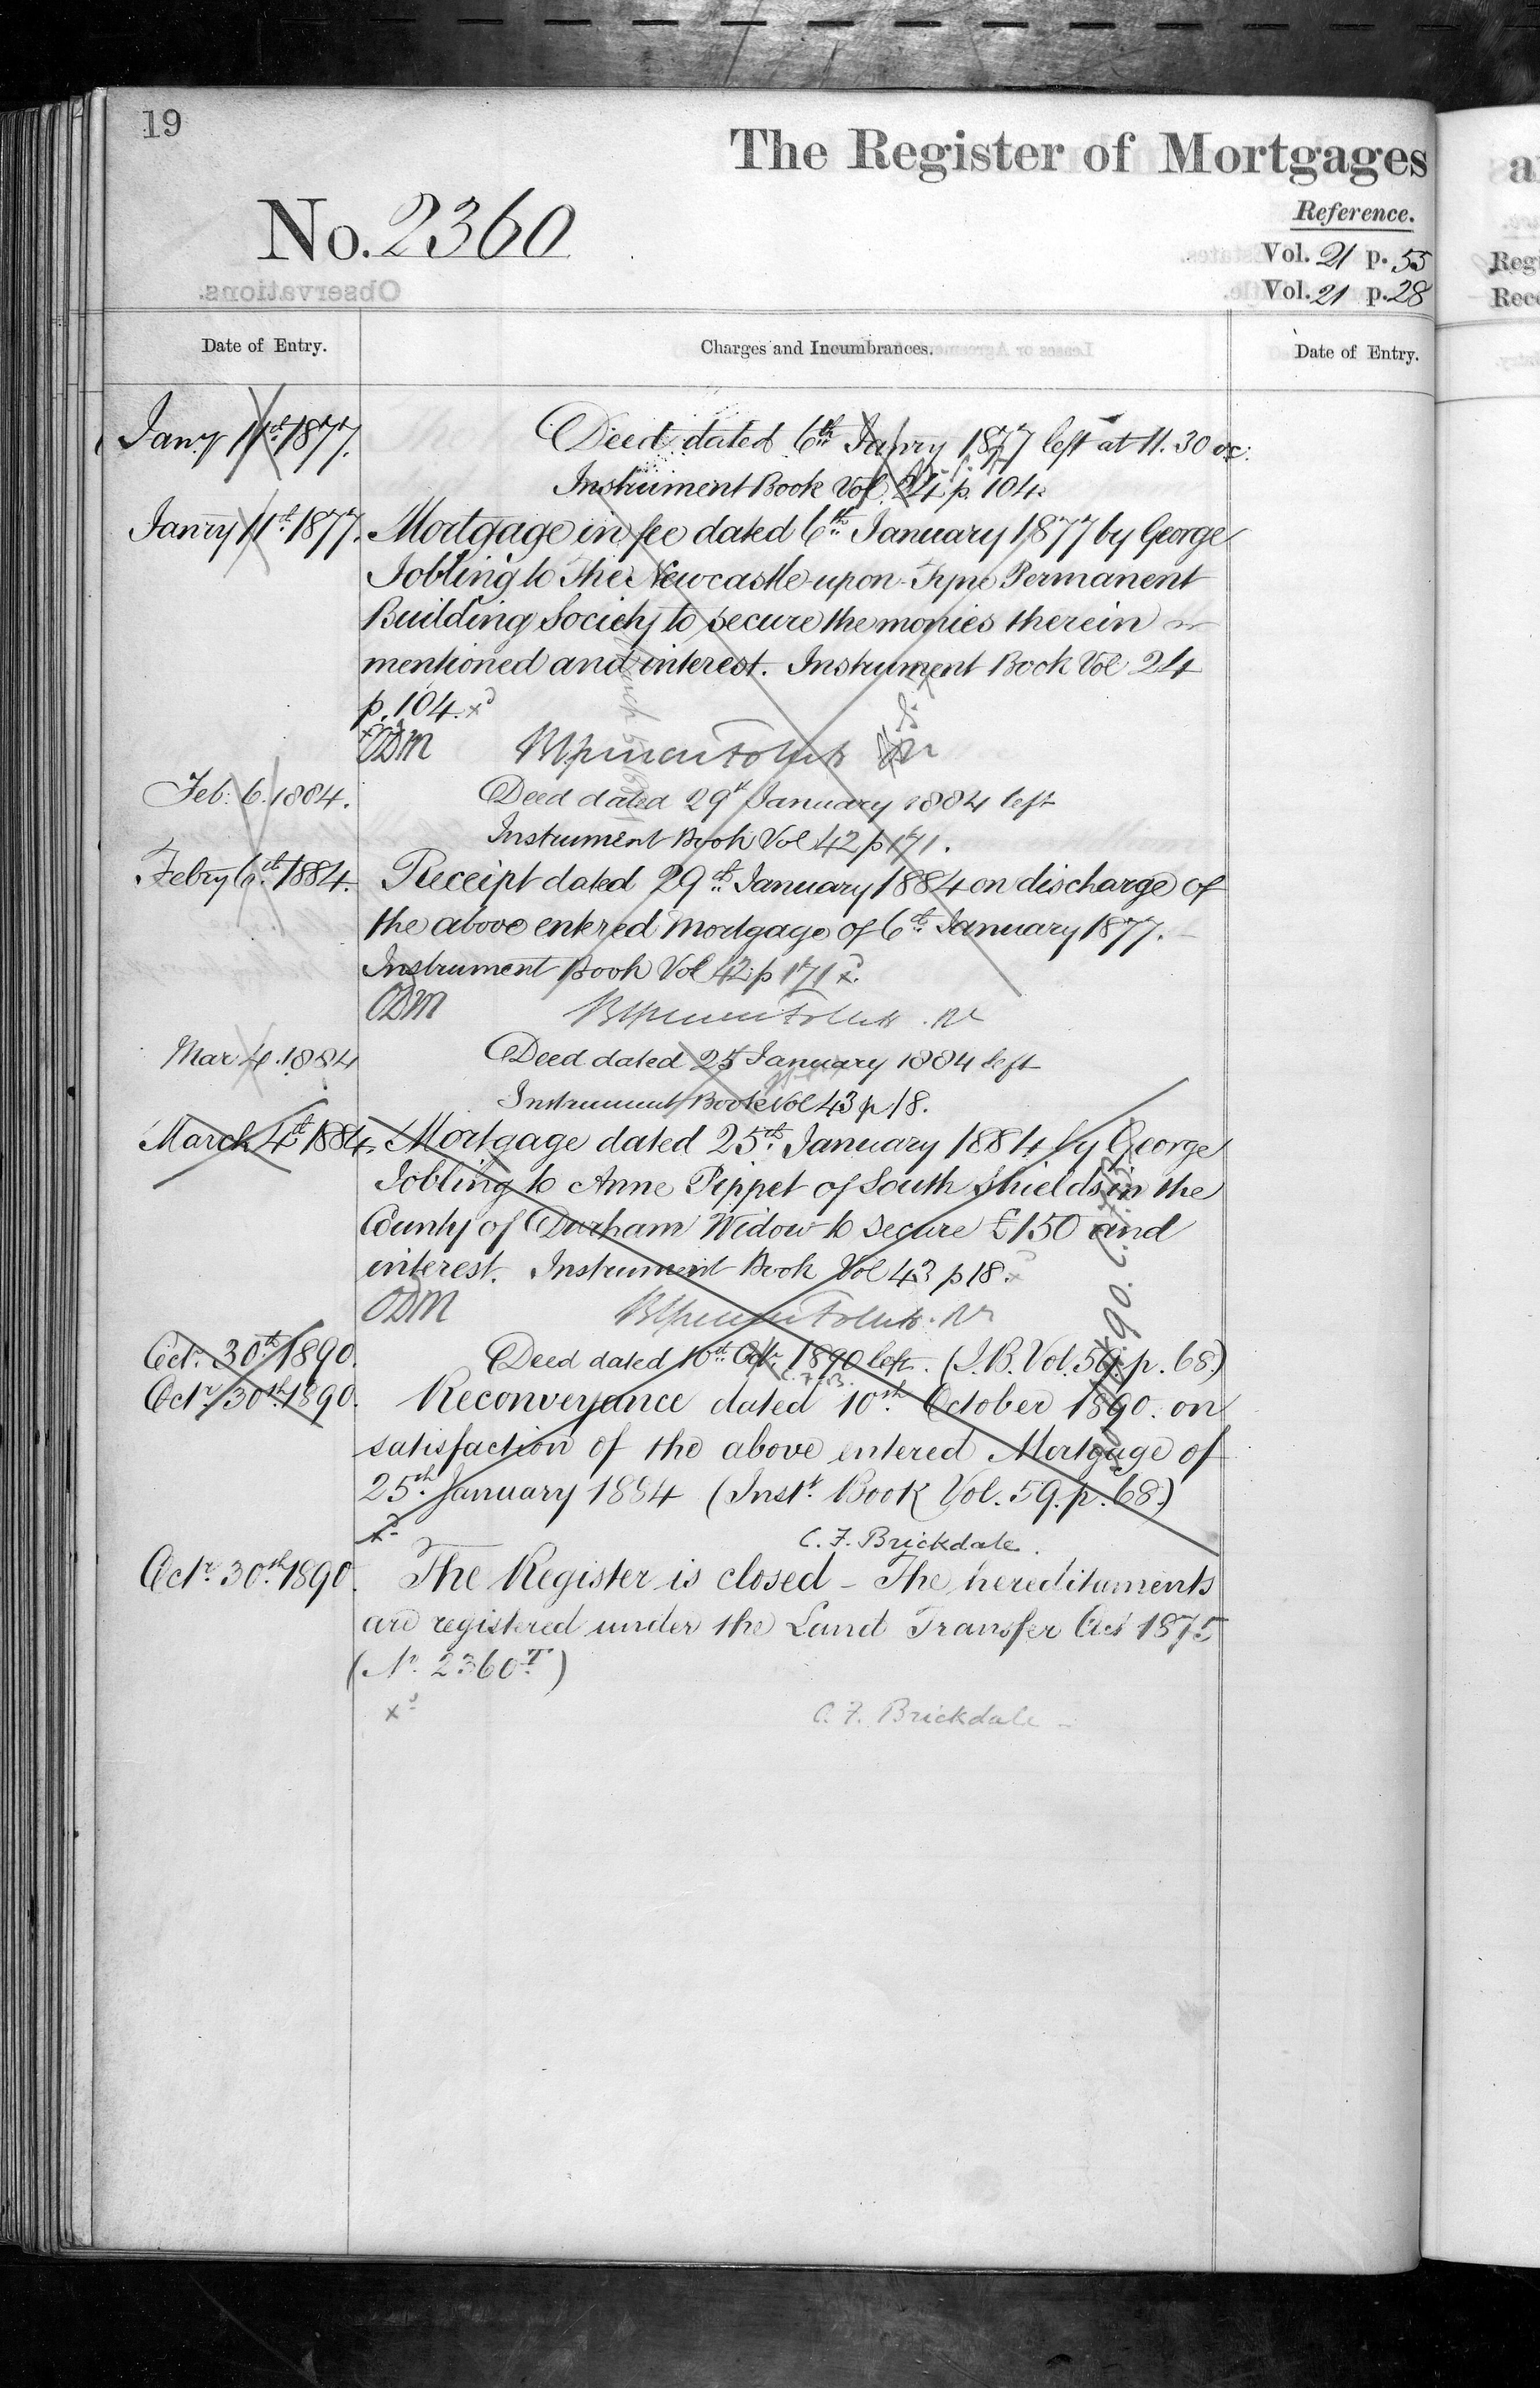 19
The Register of Mortgages
No. 2360
Reference.
Vol. 21 p. 55
Vol. 21 p. 28
Date of Entry.
Charges and Incumbrances.
Date of Entry.
Jany 11th 1877.
Deed dated 6th Janry 1877 left at 11.30 oc.
Instrument Book Vol. 24 p. 104.
Janry 11th 1877.
Mortgage in fee dated 6th January 1877 by George
Jobling to The Newcastle-upon-Tyne Permanent
Building Society to secure the monies therein
mentioned and interest. Instrument Book Vol 24
p. 104. xd
ODM
Feb: 6. 1884.
Deed dated 29th January 1884 left
Instrument Book Vol 42 p 171.
Febry 6th 1884.
Receipt dated 29th January 1884 on discharge of
the above entered Mortgage of 6th January 1877.
Instrument Book Vol 42 p 171 xd.
ODM
Mar 4. 1884
Deed dated 25 January 1884 left
Instrument Book Vol 43 p 18.
March 4th 1884.
Mortgage dated 25th January 1884 by George
Jobling to Anne Pippet of South Shields in the
County of Durham Widow to secure £150 and
interest. Instrument Book Vol 43 p 18. xd
ODM
Octr. 30th 1890.
Deed dated 10th Octr. 1890 left. (I.B. Vol. 59. p. 68.)
C.F.B.
Octr. 30th 1890.
Reconveyance dated 10th October 1890. on
satisfaction of the above entered Mortgage of
25th January 1884 (Instt. Book Vol. 59. p. 68.)
xd
C. F. Brickdale.
Octr. 30th 1890.
The Register is closed – The hereditaments
are registered under the Land Transfer Act 1875
(No. 2360T)
xd
C. F. Brickdale